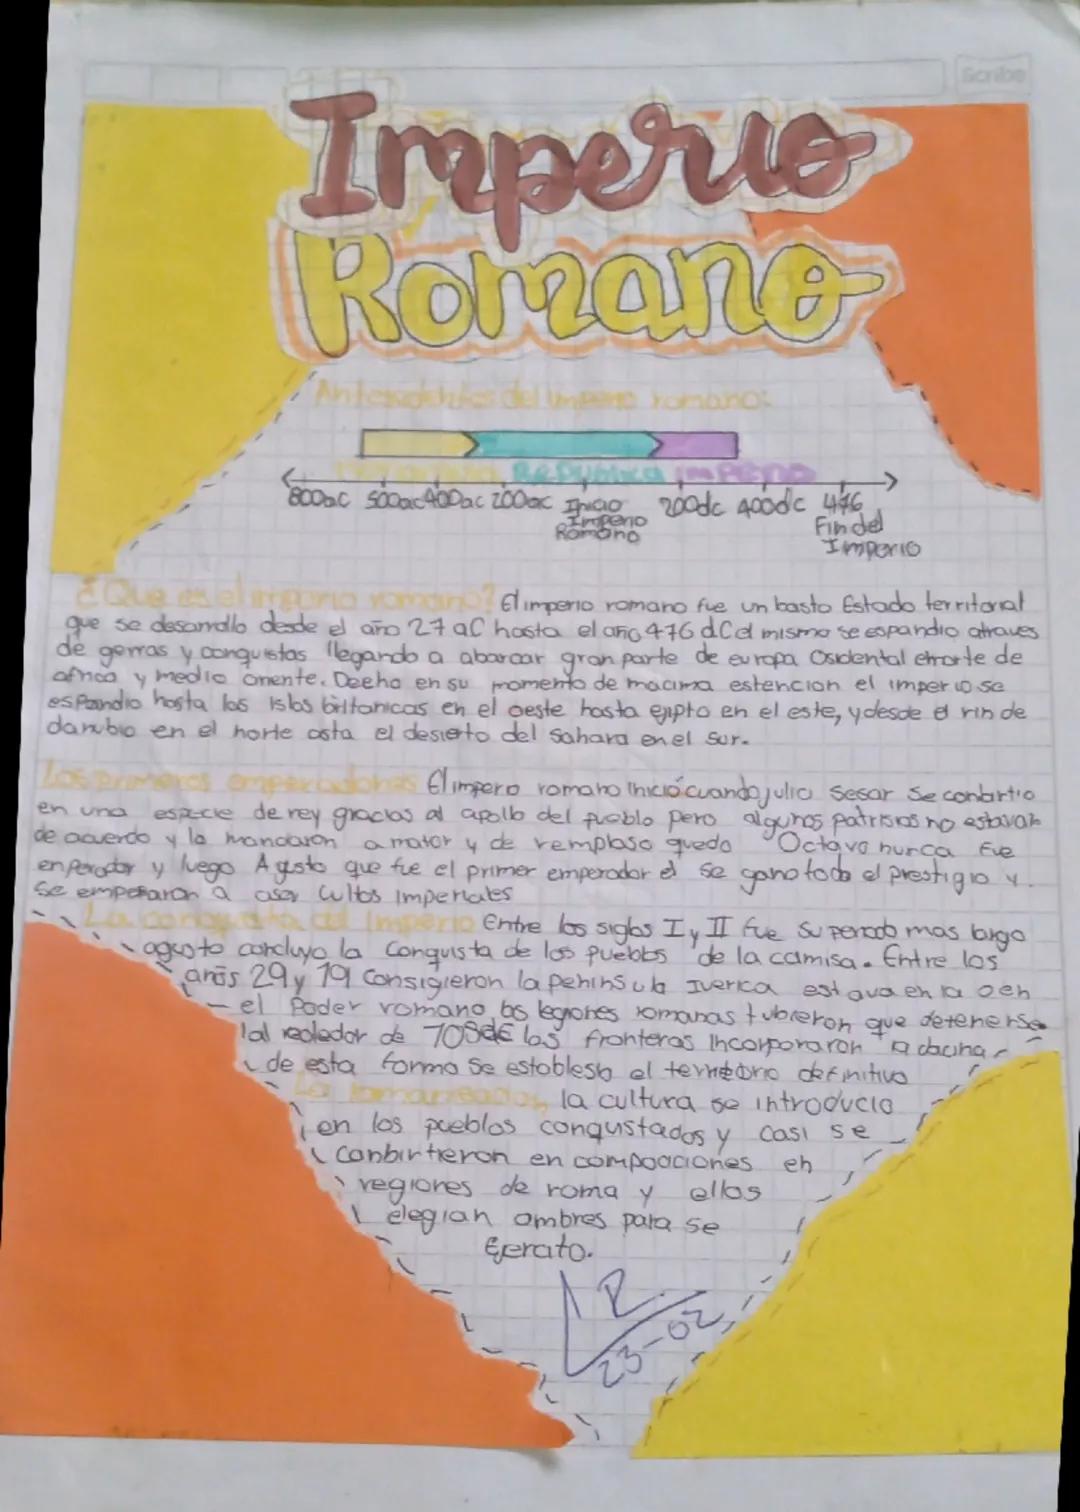 Scribe
Imperio
Romano
Antesedentes del imperio romano:
República Imperio
800ac 500ac 400ac 200ac Inicio 200dc 400dc 476
Imperio Fin del
Romano Imperio
¿Que es el imperio romano? El imperio romano fue un basto Estado territorial
que se desarrollo desde el año 27 aC hasta el año 476 d.C el mismo se espandio atraves
de gerras y conquistas llegando a abarcar gran parte de europa Osidental norte de
africa y medio oriente. Deeho en su momento de macima estencion el imperio se
espandio hasta las islas britanicas en el oeste hasta ejipto en el este, y desde el rin de
danubio en el norte asta el desierto del Sahara en el sur.
Los primeros emperadores El impero romano inició cuando julio Sesar se conbirtio
en una especie de rey gracias al apollo del pueblo pero algunos patrisios no estavan
de acuerdo y lo mandaron a matar y de remplaso quedo Octavo nunca fue
enperador y luego Agusto que fue el primer emperador el se gano todo el prestigio y
se empesaron a aser cultos imperiales
La conquista del Imperio Entre los siglos I y II fue su periodo mas largo
agusto concluyo la conquista de los pueblos de la camisa. Entre los
años 29 y 19 Consigieron la peninsula Iverica estava en la
el Poder romano, las legiones romanas tubieron que detenerse
al rededor de las fronteras incorporaron la dacina
de esta forma se establesio el territorio definitivo
La la cultura se introducio
en los pueblos conqustados y casi se
conbirtieron en en
regiones de roma y ellos
elegian ombres para se
Ejercito.
23-02